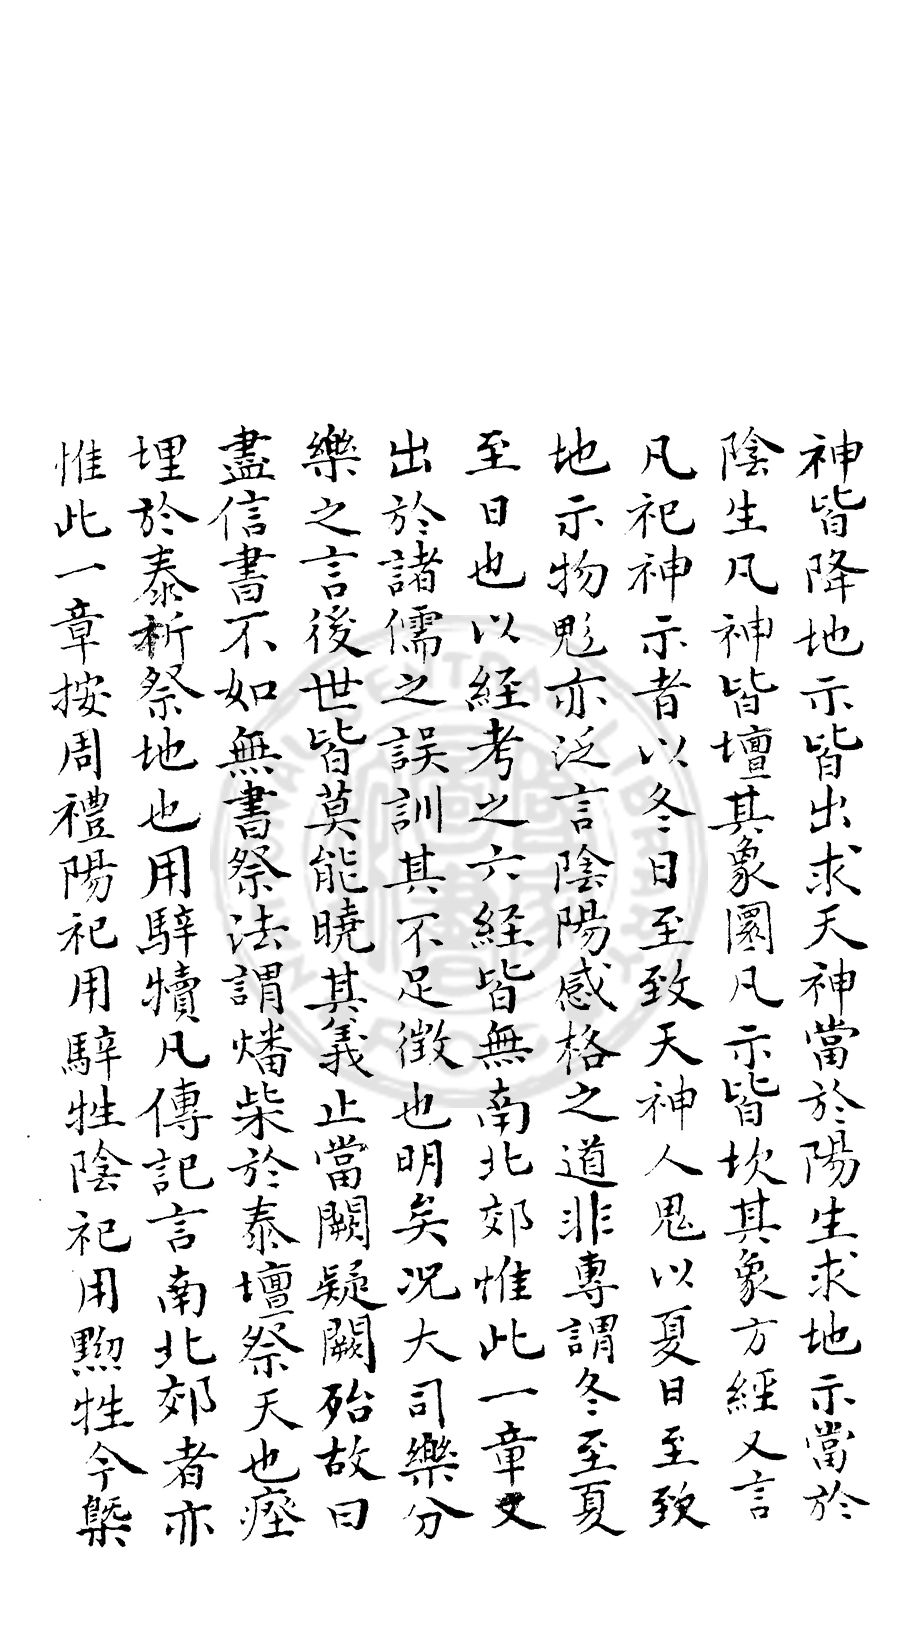 神皆降地示皆出求天神當於陽生求地示當於
陰生凡神皆壇其象圜凡示皆坎其象方經又言
凡祀神示者以冬日至致天神人鬼以夏日至致
地示物鬽亦泛言陰陽感格之道非專謂冬至夏
至日也以經考之六經皆無南北郊惟此一章文
出於諸儒之誤訓其不足徵也明矣況大司樂分
樂之言後世皆莫能曉其義止當闕疑闕殆故曰
盡信書不如無書祭法謂燔柴於泰壇祭天也瘞
埋於泰折祭地也用騂犢凡傳記言南北郊者亦
惟此一章按周禮陽祀用騂牲陰祀用黝牲今槩